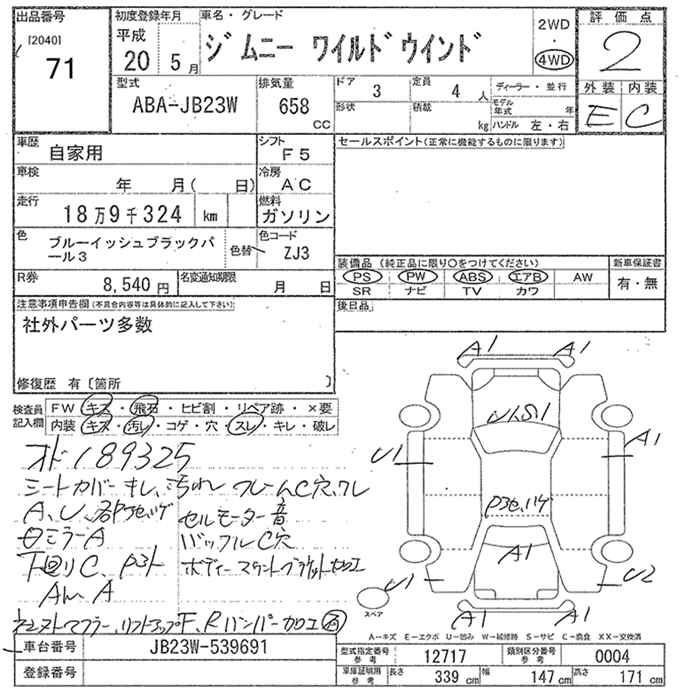 出品番号 初度登録年月 車名・グレード 2WD 評価点
[2040] 平成 ・
71 20 5月 ジムニー ワイルドウインド 4WD 2
型式 排気量 ドア 3 定員 4人 ディーラー・並行 外装 内装
ABA-JB23W 658 cc 形状 積載 kg モデル年式 年 E C
ハンドル 左・右
車歴 自家用 シフト F5 セールスポイント(正常に機能するものに限ります)
車検 年 月( 日) 冷房 AC
走行 18万9千324 km 燃料 ガソリン
色 ブルーイッシュブラックパール3 色替 色コード ZJ3
装備品 (純正品に限り○をつけてください) 新車保証書
R券 8,540円 名変通知期限 月 日 PS PW ABS エアB AW 有・無
SR ナビ TV カワ
注意事項申告欄(不具合内容等は具体的に記入して下さい) 後日品
社外パーツ多数
修復歴 有〔箇所 〕
検査員 FW キズ・飛石・ヒビ割・リペア跡・×要
記入欄 内装 キズ・汚レ・コゲ・穴・スレ・キレ・破レ
オド189325
シートカバーキレ、汚れ フレームC穴
A、U、 セルモーター音
ミラーA
下回りC、
A
F、Rバンパー加工
A1 A1
U1 A1
A1
U1 U2
A1 A1
スペア
A-キズ E-エクボ U-凹み W-補修跡 S-サビ C-腐食 XX-交換済
車台番号 JB23W-539691 型式指定番号 参考 12717 類別区分番号 参考 0004
登録番号 車庫証明用 参考 長さ 339 cm 幅 147 cm 高さ 171 cm